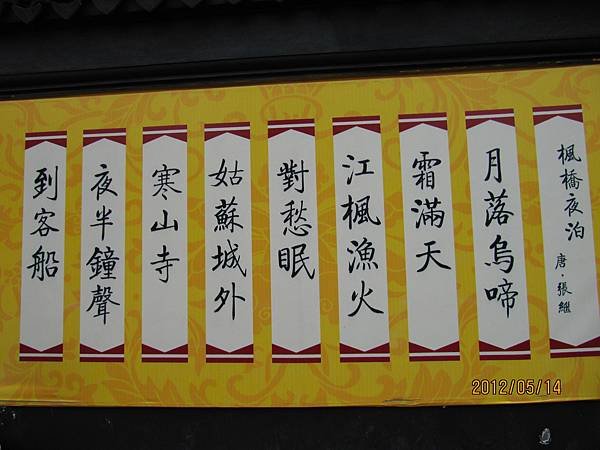 楓橋夜泊 唐·張繼
月落烏啼
霜滿天
江楓漁火
對愁眠
姑蘇城外
寒山寺
夜半鐘聲
到客船
2012/05/14